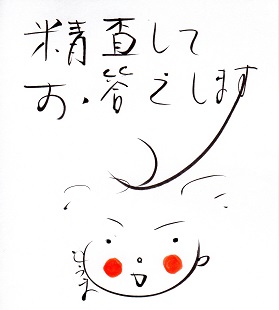 精直して
お答えします